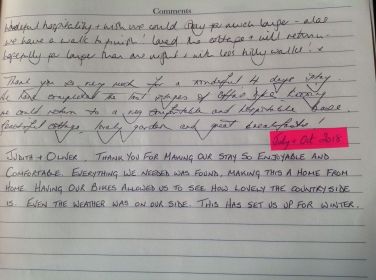 Comments
Wonderful hospitality + wish we could stay for much longer - alas
we have a walk to finish! Loved the cottage + will return -
hopefully for longer than one night + with less hilly walks! x
Thank you so very much for a wonderful 4 days stay.
We have completed the last stages of Offas Dyke
we could return to a very comfortable and hospitable base
Beautiful cottage, lovely garden and great breakfasts!
July - Oct 2018
JUDITH + OLIVER. THANK YOU FOR MAKING OUR STAY SO ENJOYABLE AND
COMFORTABLE. EVERYTHING WE NEEDED WAS FOUND, MAKING THIS A HOME FROM
HOME. HAVING OUR BIKES ALLOWED US TO SEE HOW LOVELY THE COUNTRYSIDE
IS. EVEN THE WEATHER WAS ON OUR SIDE. THIS HAS SET US UP FOR WINTER.